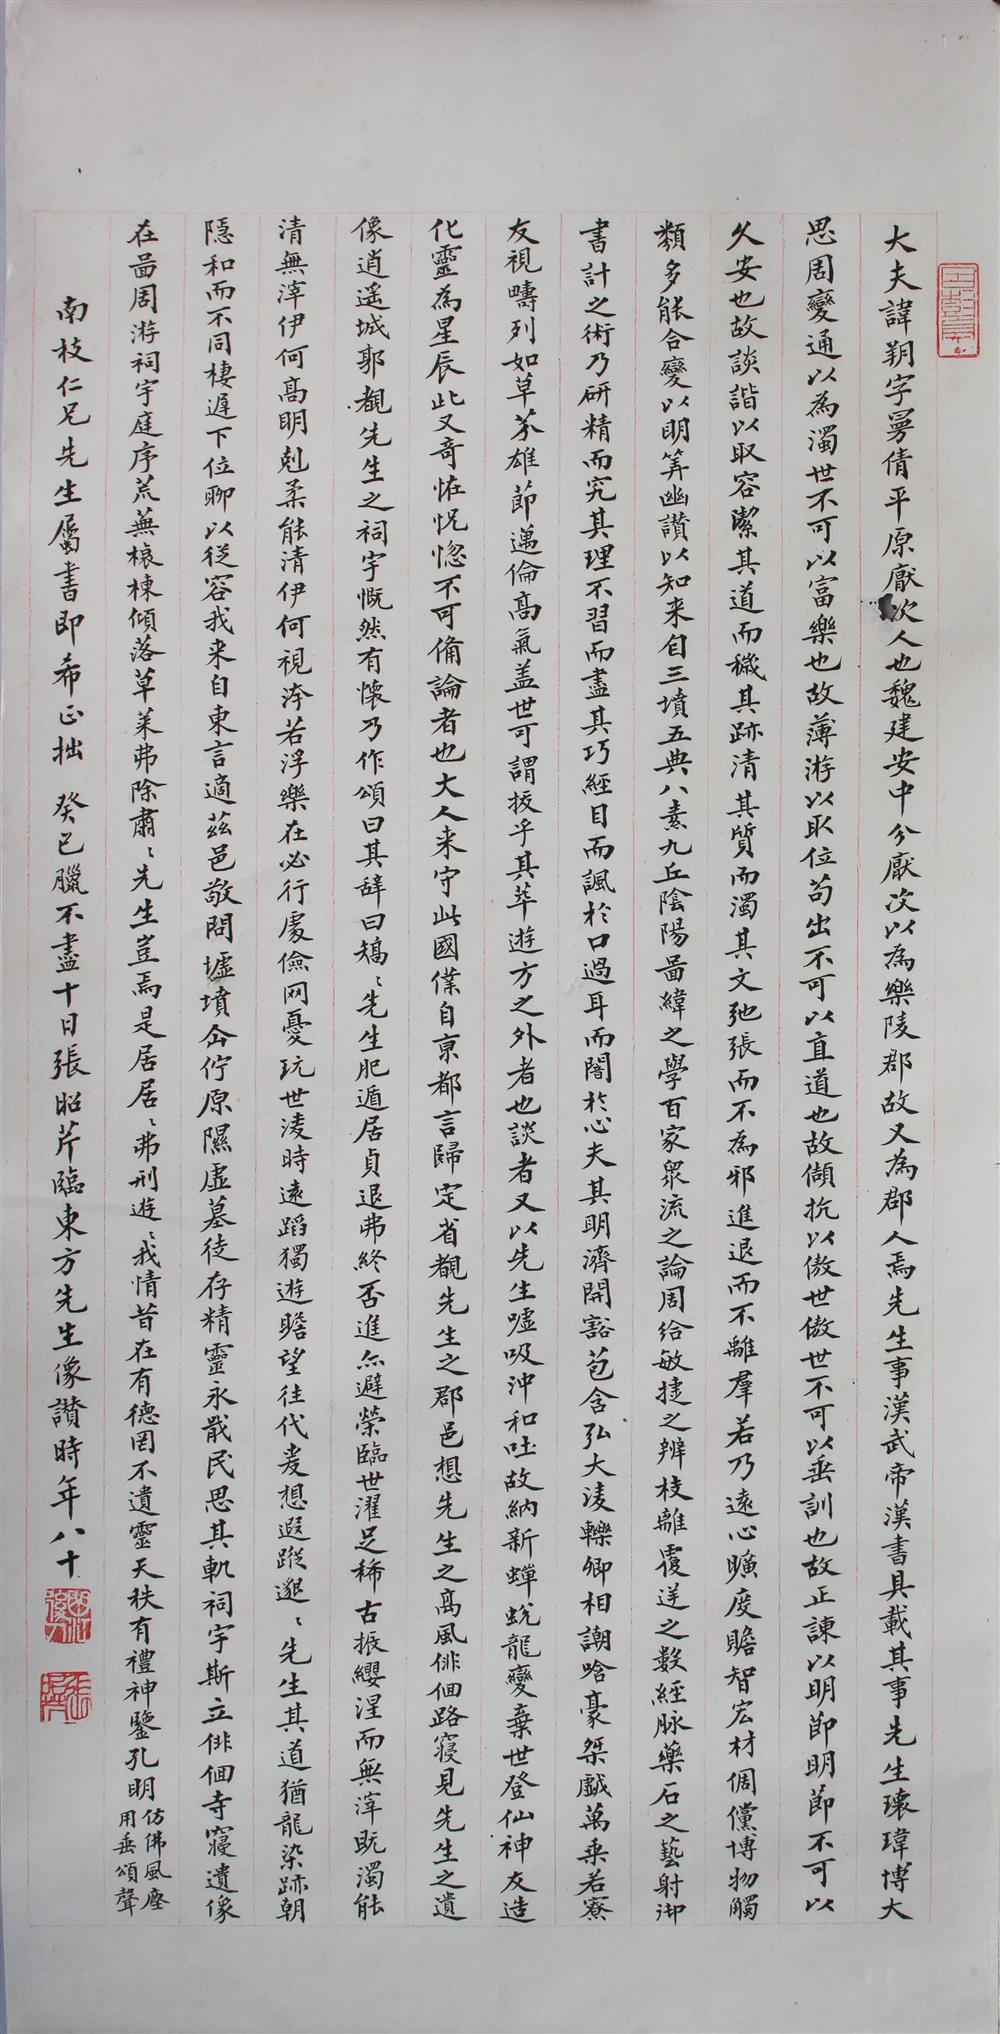 大夫諱朔字曼倩平原厭次人也魏建安中分厭次以為樂陵郡故又為郡人焉先生事漢武帝漢書具載其事先生瓌瑋博大
思周變通以為濁世不可以富樂也故薄游以取位苟出不可以直道也故傾抗以傲世傲世不可以垂訓也故正諫以明節明節不可以
久安也故談諧以取容潔其道而穢其跡清其質而濁其文弛張而不為邪進退而不離羣若乃遠心曠度贍智宏材倜儻博物觸
類多能合變以明筭幽讚以知来自三墳五典八素九丘陰陽啚緯之學百家眾流之論周給敏捷之辨枝離覆逆之数經脉藥石之藝射御
書計之術乃研精而究其理不習而盡其巧經目而諷於口過耳而闇於心夫其明濟開豁苞含弘大淩轢卿相謿哈豪桀戲萬乘若寮
友視疇列如草芥雄節邁倫高氣盖世可謂拔乎其萃遊方之外者也談者又以先生噓吸沖和吐故納新蟬蛻龍變棄世登仙神友造
化靈為星辰此又奇恠怳惚不可備論者也大人来守此國僕自京都言歸定省覩先生之郡邑想先生之高風俳佪路寢見先生之遺
像逍遥城郭覩先生之祠宇慨然有懷乃作頌曰其辞曰矯〻先生肥遁居貞退弗終否進亦避榮臨世濯足稀古振纓涅而無滓既濁能
清無滓伊何高明剋柔能清伊何視洿若浮樂在必行處儉罔憂玩世淩時遠蹈獨遊瞻望往代爰想遐蹤邈〻先生其道猶龍染跡朝
隱和而不同棲遲下位聊以從容我来自東言適茲邑敬問墟墳企佇原隰虛墓徒存精靈永戢民思其軌祠宇斯立俳佪寺寢遺像
在啚周游祠宇庭序荒蕪榱棟傾落草莱弗除肅〻先生豈焉是居居〻弗刑遊〻我情昔在有德罔不遺靈天秩有禮神鑒孔明仿佛風塵用垂頌聲
南枝仁兄先生屬書即希正拙 癸巳臘不盡十日張昭芹臨東方先生像讚時年八十